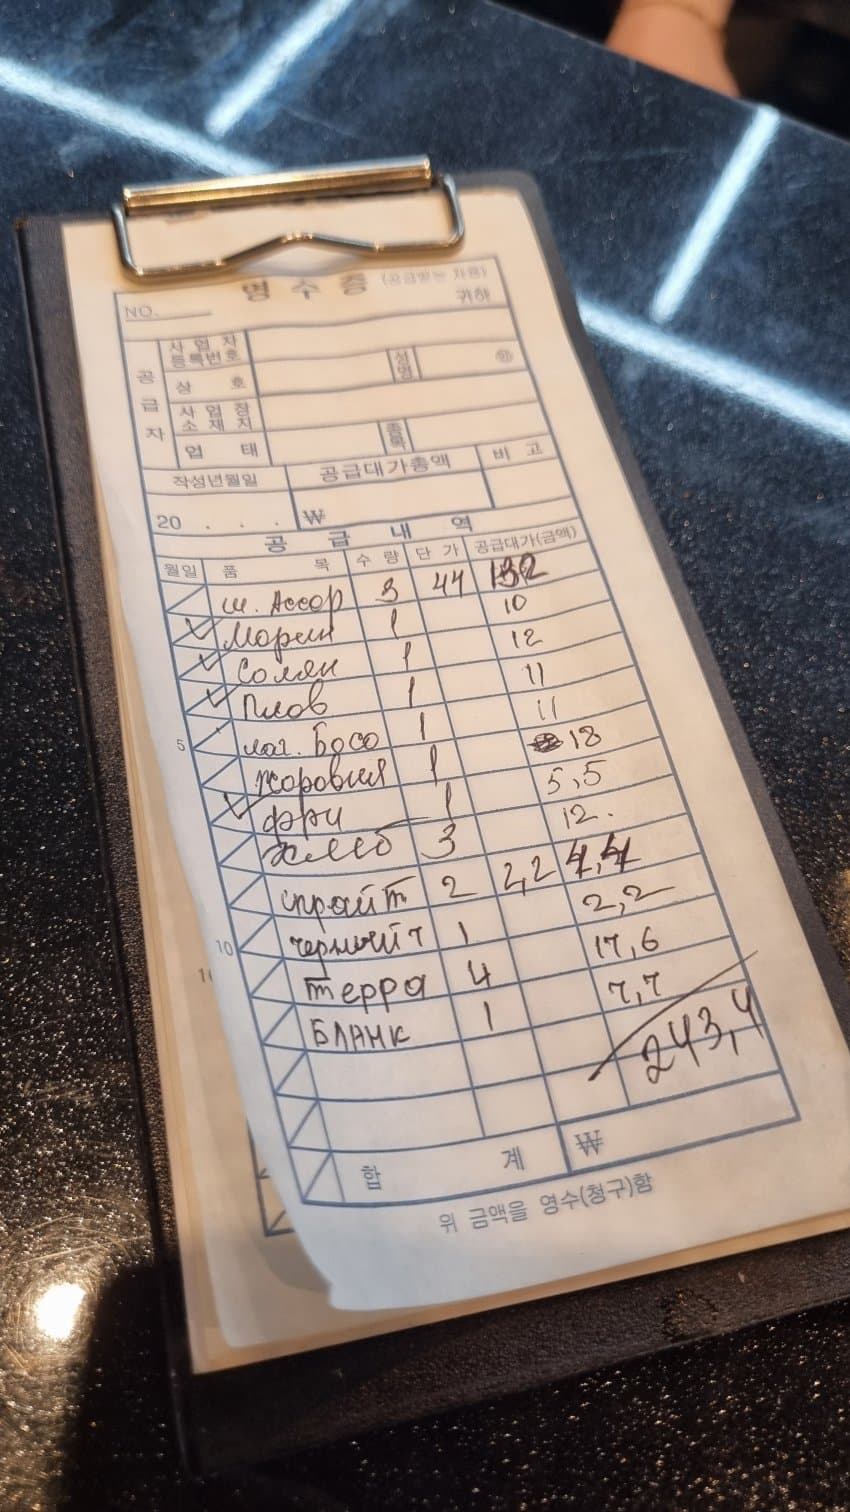 영 수 증 (공급받는 자용)
NO. 귀하
공급자 사업자등록번호
상 호 성명 ㊞
사업장소재지
업 태 종목
작성년월일 공급대가총액 비 고
20 . . . ₩
공 급 내 역
월일 품 목 수 량 단 가 공급대가(금액)
ш. Ассор 3 44 132
Морск 1 10
Солян 1 12
Плов 1 11
5 лаг. Босо 1 11
жаровня 1 18
фри 1 5,5
хлеб 3 12.
спрайт 2 2,2 4,4
10 черный ч 1 2,2
терра 4 17,6
БЛАНК 1 7,7
243,4
합 계 ₩
위 금액을 영수(청구)함